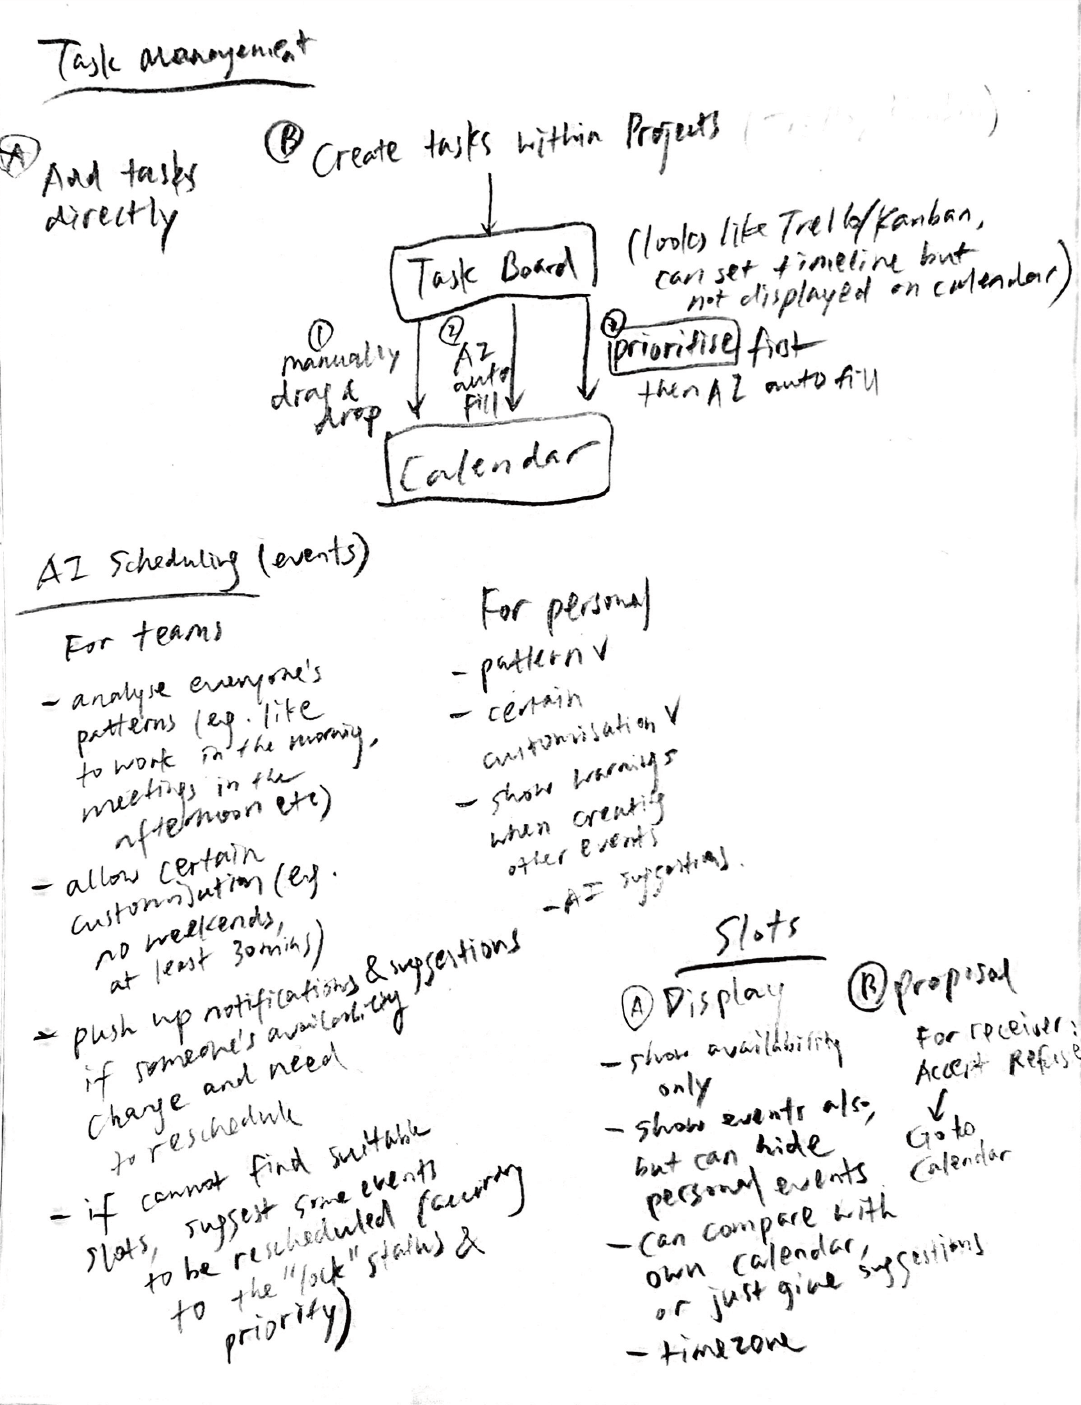 Task Management
Ⓐ Add tasks
directly
Ⓑ Create tasks within Projects
Task Board
(looks like Trello/Kanban,
can set timeline but
not displayed on calendar)
① manually
drag &
drop
② AI
auto
fill
③ prioritise first
then AI auto fill
Calendar
AI Scheduling (events)
For teams
- analyse everyone's
patterns (eg. like
to work in the morning,
meetings in the
afternoon etc)
- allow certain
customisation (eg.
no weekends,
at least 30mins)
- push up notifications & suggestions
if someone's availability
change and need
to reschedule
- if cannot find suitable
slots, suggest some events
to be rescheduled (according
to the "lock" status &
priority)
For personal
- pattern √
- certain
customisation √
- show warnings
when creating
other events
- AI suggestions.
Slots
Ⓐ Display
- show availability
only
- show events also,
but can hide
personal events
- can compare with
own calendar,
or just give suggestions
- timezone
Ⓑ proposal
For receiver:
Accept Refuse
↓
Go to
Calendar